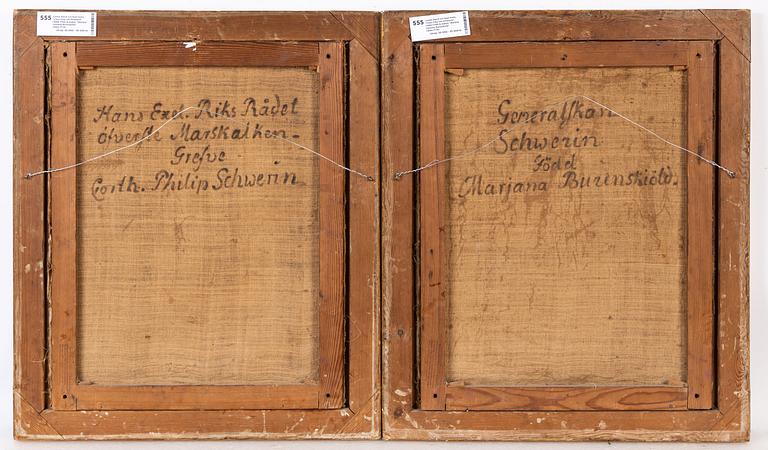 555
Hans Exel. Riks Rådet
öfverste Marskalken-
Grefve
Corth. Philip Schwerin
555
Generalskan
Schwerin
Född
Marjana Burenskiöld.